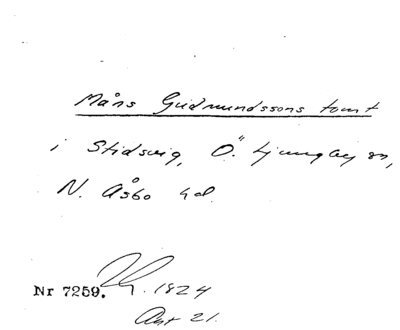 Måns Gudmundssons tomt
i Stidsvig, Ö. Ljungby sn,
N. Åsbo hd.
Nr 7259. 1824
Akt 21.